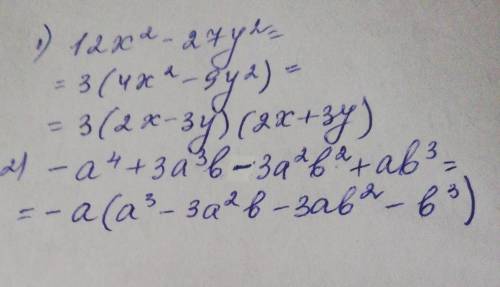 1) 12x² - 27y² =
= 3(4x² - 9y²) =
= 3(2x - 3y)(2x + 3y)
2) -a⁴ + 3a³b - 3a²b² + ab³ =
= -a(a³ - 3a²b - 3ab² - b³)